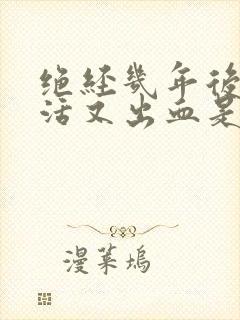 绝经几年後
活又出血是
漫菜坞